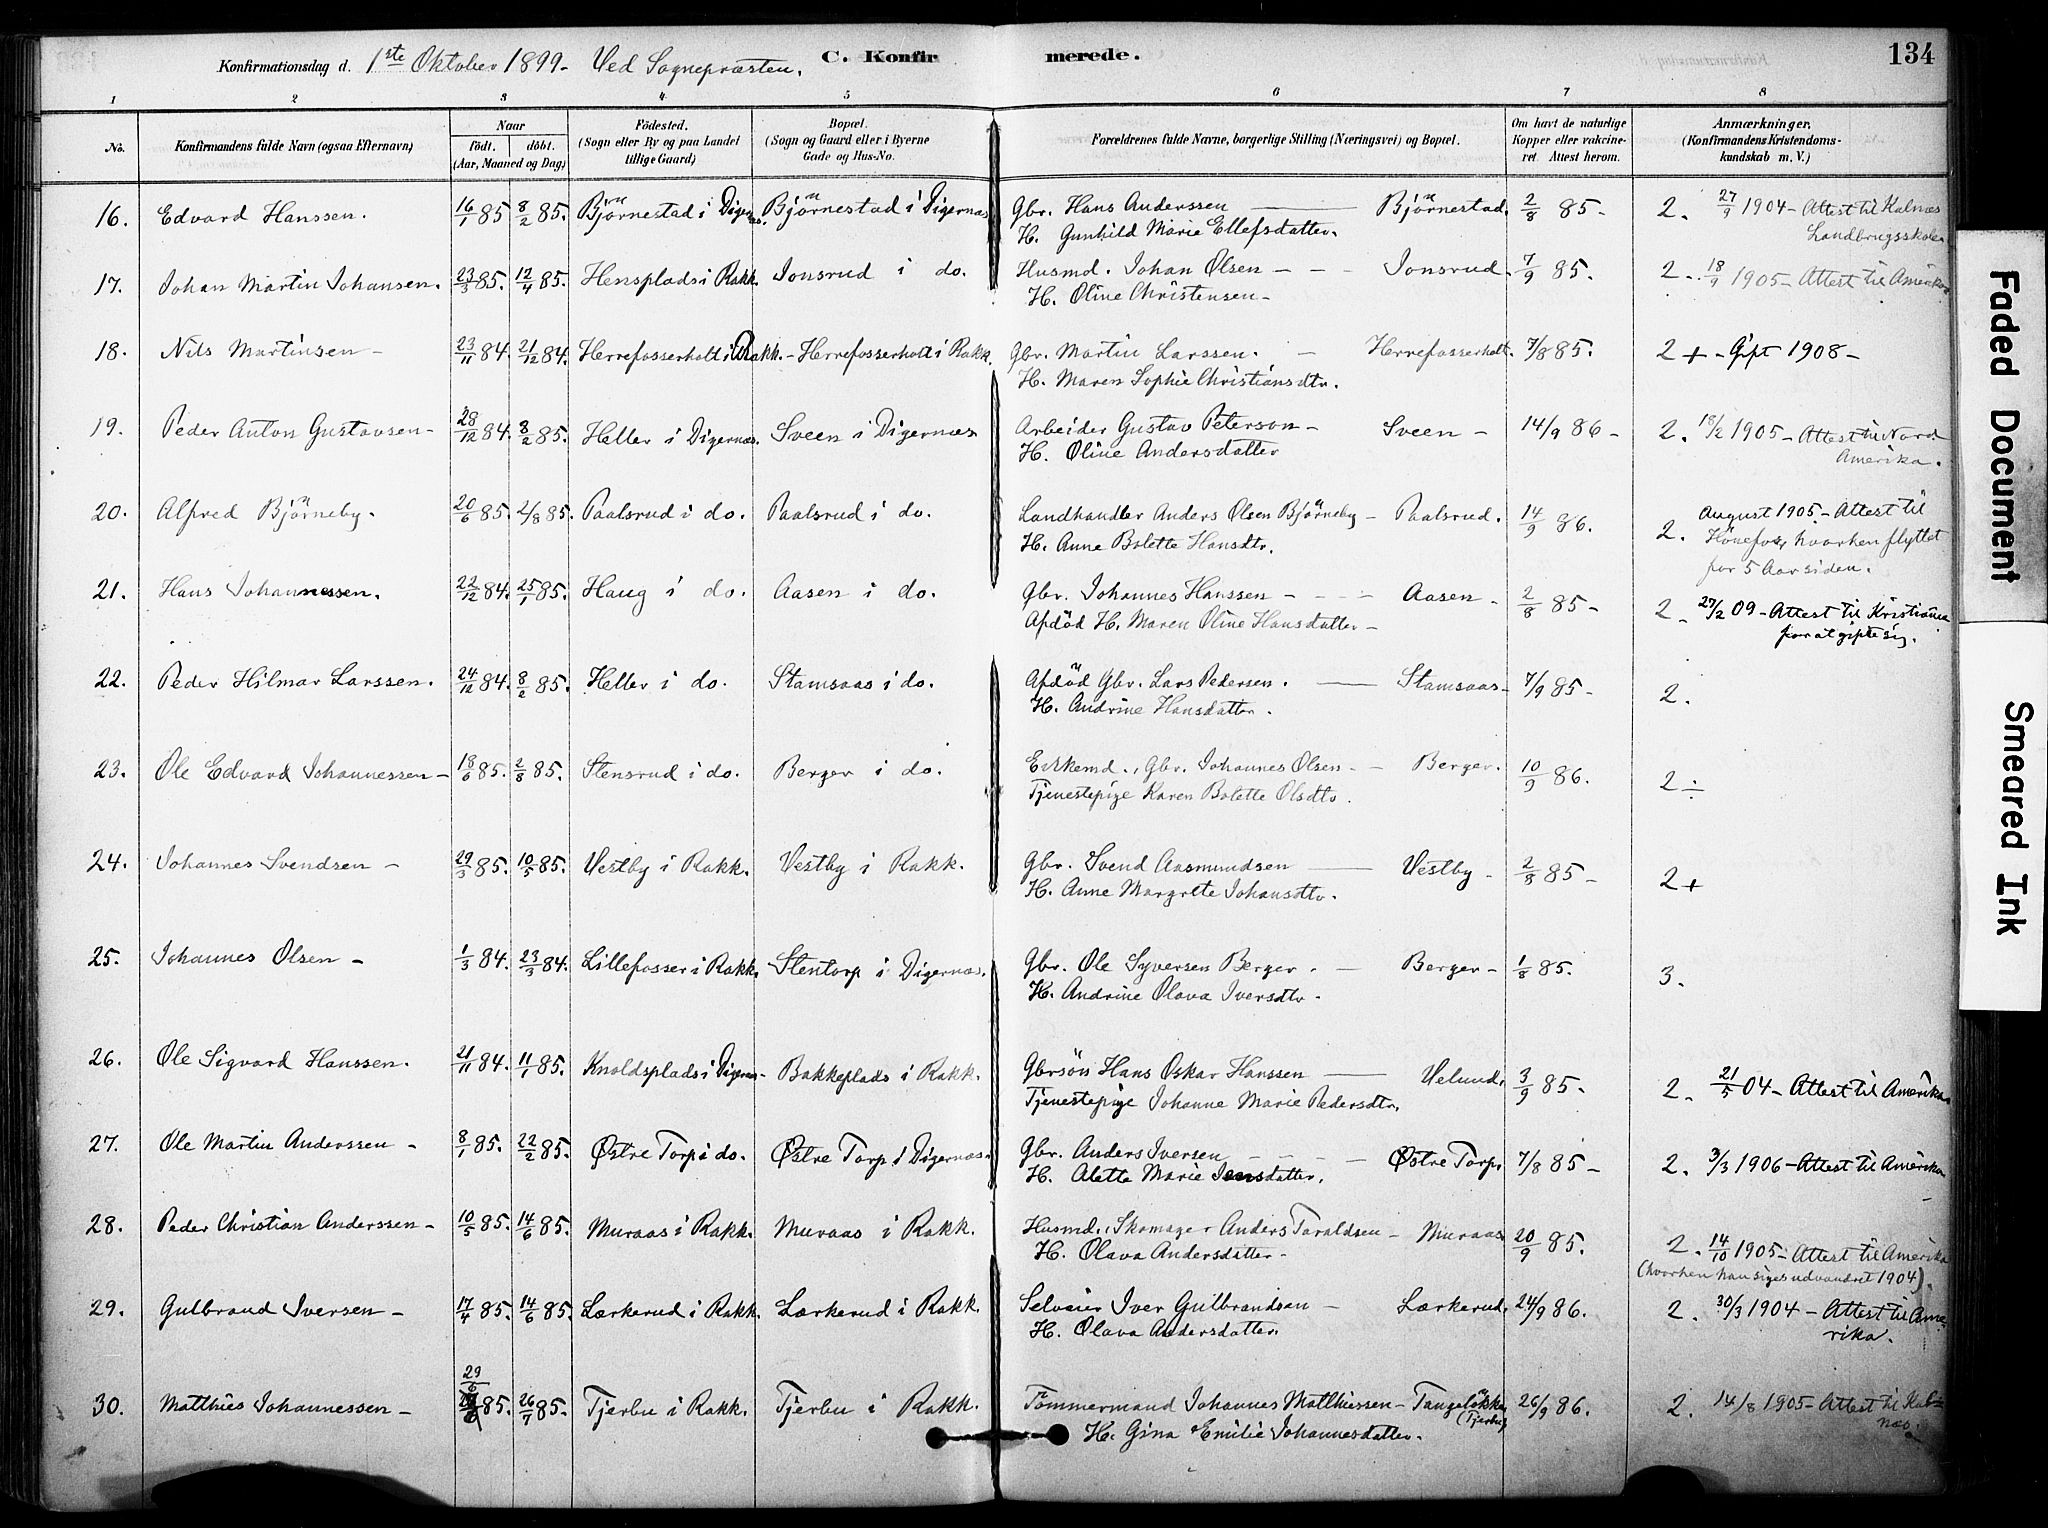 Konfirmationsdag d. 1ste Oktober 1899 - Ved Sognepræsten. C. Konfirmerede. 134
1 2 3 4 5 6 7 8
No. Konfirmandens fulde Navn (ogsaa Efternavn) Naar født. døbt. (Aar, Maaned og Dag) Fødested. (Sogn eller By og paa Landet tillige Gaard) Bopæl. (Sogn og Gaard eller i Byerne Gade og Hus-No. Forældrenes fulde Navne, borgerlige Stilling (Næringsvei) og Bopæl. Om havt de naturlige Kopper eller vakcineret. Attest herom. Anmærkninger. (Konfirmandens Kristendomskundskab m. V.)
16. Edvard Hanssen. 16/1 85 8/2 85. Bjørnestad i Digernæs. Bjørnestad i Digernæs Gbr. Hans Anderssen — Bjørnestad. 2/8 85 - 2. 27/9 1904 - Attest til Kalnæs
H. Gunhild Marie Ellefsdatter. Landbrugsskole.
17. Johan Martin Johansen. 23/3 85. 12/4 85. Hensplads i Rakk. Jonsrud i do. Husmd. Johan Olsen - - Jonsrud. 7/9 85. 2. 18/9 1905 - Attest til Amerika
H. Oline Christensen -
18. Nils Martinsen - 23/11 84. 21/12 84. Herrefosserholt i Rakk. - Herrefosserholt i Rakk. Gbr. Martin Larssen. - Herrefosserholt. 7/8 85. 2 + - Gift 1908 -
H. Maren Sophie Christiansdtr.
19. Peder Anton Gustavsen - 28/12 84. 8/2 85. Heller i Digernæs. Sveen i Digernæs Arbeider Gustav Peterson - Sveen - 14/9 86 - 2. 18/2 1905 - Attest til Nord
H. Oline Andersdatter Amerika.
20. Alfred Bjørneby. 20/6 85. 2/8 85. Paalsrud i do. Paalsrud i do. Landhandler Anders Olsen Bjørneby - Paalsrud. 14/9 86. 2. August 1905 - Attest til
H. Anne Bolette Hansdtr. Hønefos, hvorhen flyttet
for 5 Aar siden.
21. Hans Johannessen. 22/12 84. 25/1 85. Haug i do. Aasen i do. Gbr. Johannes Hanssen - - - Aasen - 2/8 85 - 2. 27/2 09 - Attest til Kristiania
Afdød H. Maren Oline Hansdatter - for at gifte sig.
22. Peder Hilmar Larssen. 24/12 84. 8/2 85. Heller i do. Stamsaas i do. Afdød Gbr. Lars Pedersen. — Stamsaas - 7/9 85 - 2.
H. Andrine Hansdatter.
23. Ole Edvard Johannessen - 18/6 85. 2/8 85. Stensrud i do. Berger i do. Enkemd., Gbr. Johannes Olsen - - Berger. 10/9 86. 2 ÷
Tjenestepige Karen Bolette Olsdtr.
24. Johannes Svendsen - 29/3 85. 10/5 85. Vestby i Rakk. Vestby i Rakk. Gbr. Svend Aasmundsen — Vestby - 2/8 85 - 2 +
H. Anne Margrete Johansdtr.
25. Johannes Olsen - 1/3 84. 23/3 84. Lillefosser i Rakk. Stentorp i Digernæs. Gbr. Ole Syversen Berger. - Berger - 1/8 85. 3.
H. Andrine Olava Iversdtr.
26. Ole Sigvard Hanssen. 21/11 84. 11/1 85. Knoldsplads i Digernæs - Bakkeplads i Rakk. Gbrsøn Hans Oskar Hanssen — Velund. 3/9 85 - 2. 21/5 04 - Attest til Amerika
Tjenestepige Johanne Marie Pedersdtr.
27. Ole Martin Anderssen - 8/1 85. 22/2 85. Østre Torp i do. Østre Torp i Digernæs. Gbr. Anders Iversen - - - - Østre Torp. 7/8 85 - 2. 3/3 1906 - Attest til Amerika
H. Alette Marie Jensdatter.
28. Peder Christian Anderssen - 10/5 85. 14/6 85. Muraas i Rakk. Muraas i Rakk. Husmd., Skomager Anders Taraldsen - Muraas 20/9 85. 2. 14/10 1905 - Attest til Amerika
H. Olava Andersdatter - (hvorhen han siges udvandret 1904).
29. Gulbrand Iversen - 17/4 85. 14/6 85. Lærkerud i Rakk. Lærkerud i Rakk. Selveier Iver Gulbrandsen - Lærkerud. 24/9 86. 2. 30/3 1904 - Attest til Ame-
H. Olava Andersdatter rika.
30. Matthies Johannessen - 29/6 85. 26/7 85. Tjerbu i Rakk. Tjerbu i Rakk. Tømmermand Johannes Matthiessen - Tangeløkka (Tjerbu) 26/9 86. 2. 14/8 1905 - Attest til Kal-
H. Gina Emilie Johannesdatter. næs.
Faded Document
Smeared Ink